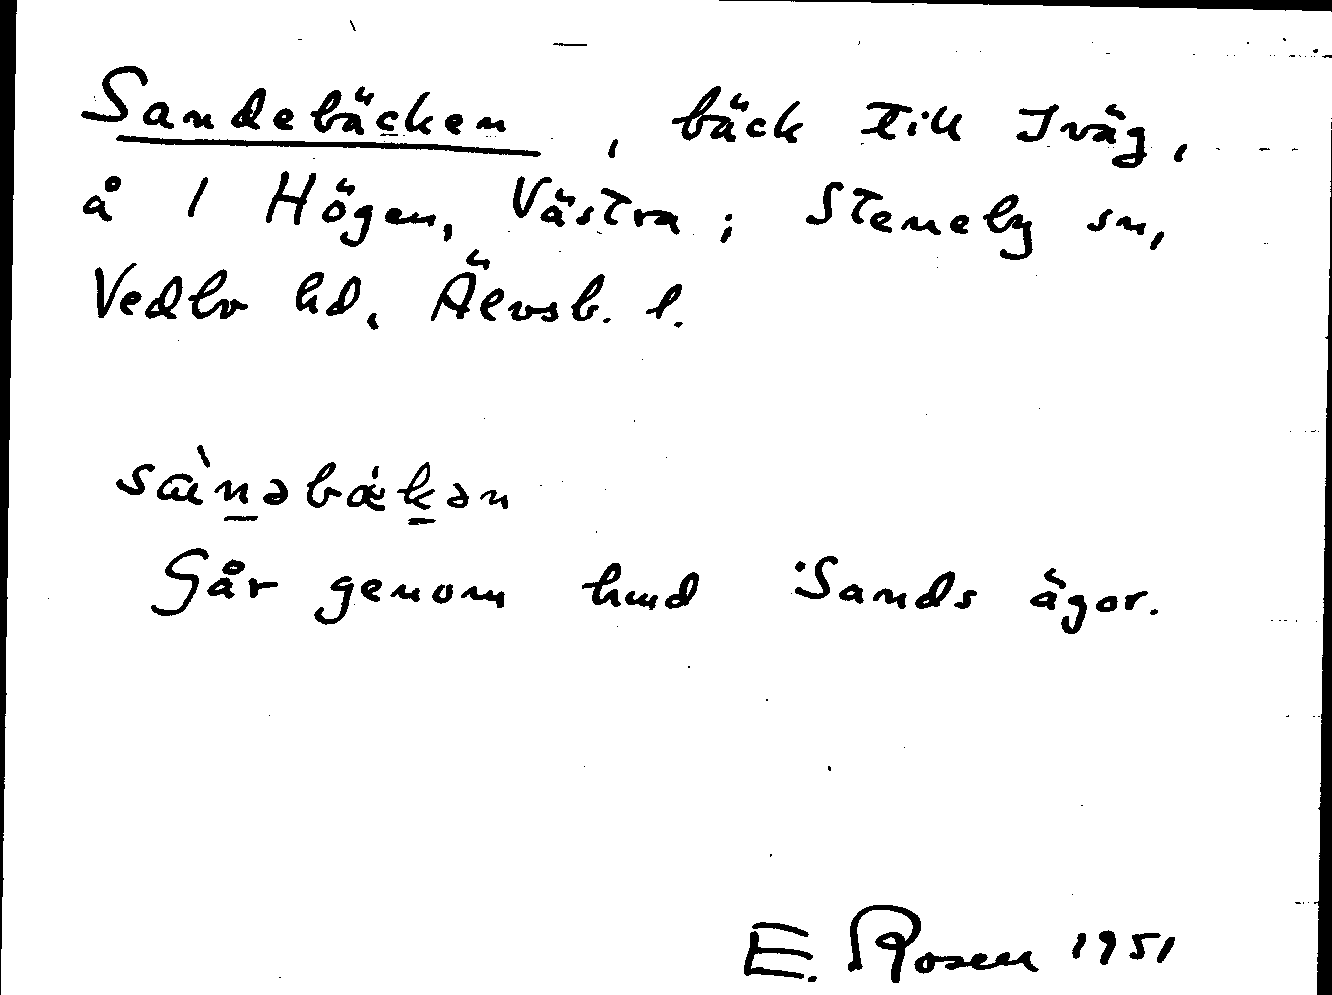 Sandebäcken, bäck till Iväg,
å 1 Högen, Västra; Steneby sn,
Vedbo hd, Älvsb. l.
sànəbǽkən
Går genom hmd Sands ägor.
E. Rosen 1951